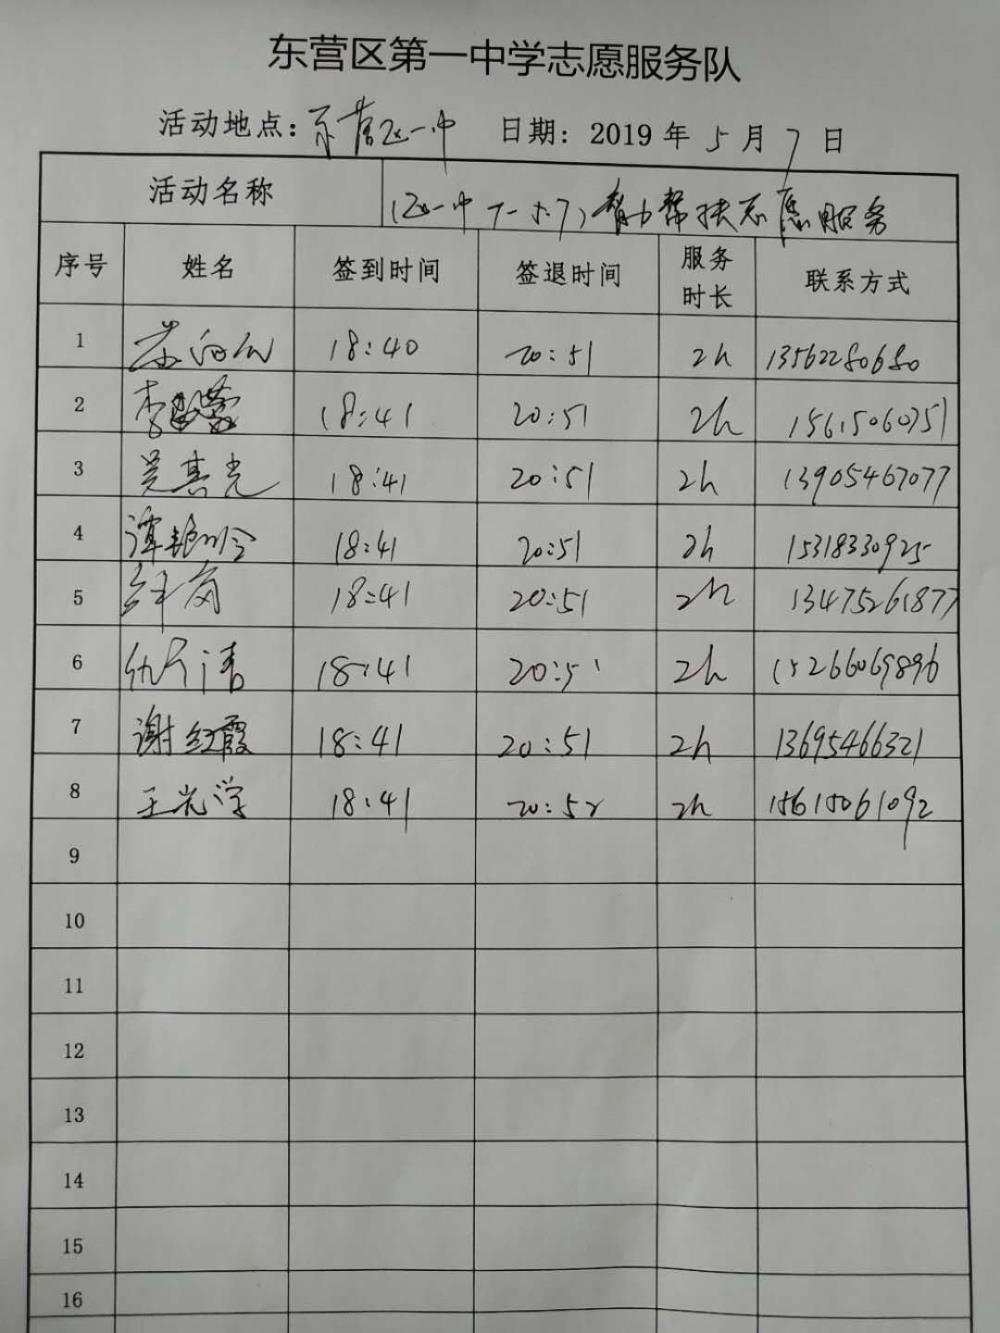 东营区第一中学志愿服务队
活动地点: 东营区一中 日期: 2019 年 5 月 7 日
活动名称 (区一中 5.7) 帮扶志愿服务
序号 姓名 签到时间 签退时间 服务时长 联系方式
1 18:40 20:51 2h 13562280680
2 李 18:41 20:51 2h 15615060751
3 吴其光 18:41 20:51 2h 13905467077
4 谭艳玲 18:41 20:51 2h 15318330925
5 18:41 20:51 2h 13475261877
6 仇 清 18:41 20:51 2h 15266069896
7 谢红霞 18:41 20:51 2h 13695466321
8 王光学 18:41 20:52 2h 15615061092
9
10
11
12
13
14
15
16